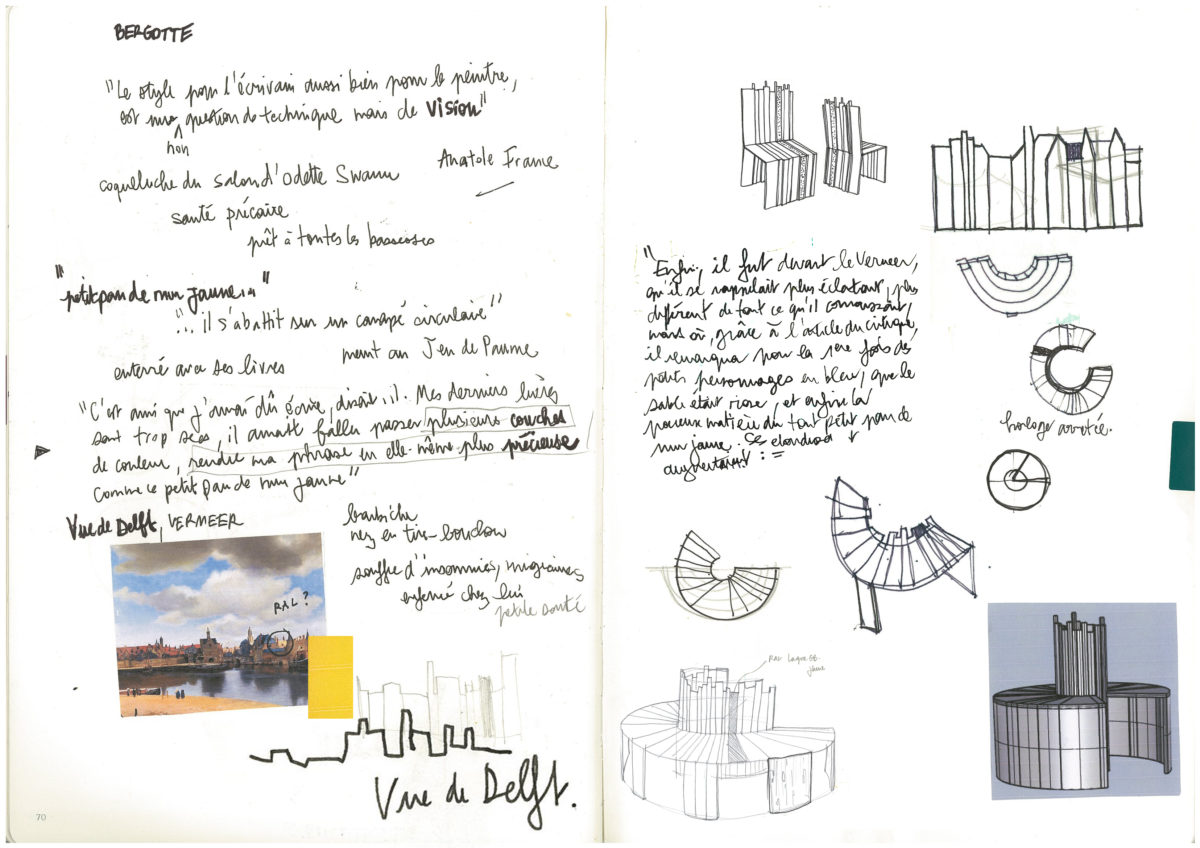 BERGOTTE
"Le style pour l'écrivain aussi bien pour le peintre,
est une question de technique mais de vision"
non
Anatole France
coqueluche du salon d'Odette Swann
santé précaire
prêt à toutes les bassesses
"petit pan de mur jaune..."
"... il s'abattit sur un canapé circulaire"
meurt au Jeu de Paume
enterré avec ses livres
"C'est ainsi que j'aurai dû écrire, disait-il. Mes derniers livres
sont trop secs, il aurait fallu passer plusieurs couches
de couleur, rendre ma phrase en elle-même plus précieuse
comme ce petit pan de mur jaune"
Vue de Delft, VERMEER
barbiche
nez en tire-bouchon
souffre d'insomnies, migraines
enfermé chez lui
petite santé
RAL?
Vue de Delft.
70
"Enfin, il fut devant le Vermeer,
qu'il se rappelait plus éclatant, plus
différent de tout ce qu'il connaissait,
mais où, grâce à l'article du critique,
il remarqua pour la 1ere fois des
petits personnages en bleu, que le
sable était rose, et enfin la
précieuse matière du tout petit pan de
mur jaune. Ses étourdis
augmentaient :
horloge arrêtée.
RAL laque
jaune